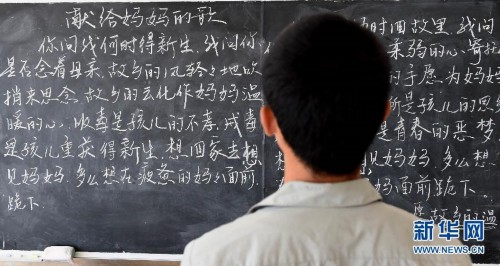 献给妈妈的歌
你问我何时得新生,我问你
是否念着母亲,故乡的风轻々地吹
捎来思念,故乡的云化作妈妈温
暖的心,吸毒是孩儿的不孝,戒毒
是孩儿重获得新生,想回家去想
见妈妈,多么想在疲惫的妈妈面前
跪下
时回故里,我问
柔弱的心,寄托
的手愿为妈妈
是孩儿的思
是青春的恶梦
见妈妈,多么想
妈面前跪下
新华网
WWW.NEWS.CN